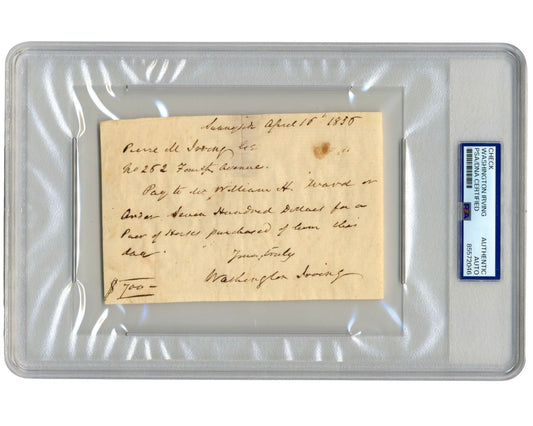 Sunnyside April 15th 1856
Pierre M Irving Esq
No 262 Fourth Avenue.
Pay to Mr William H. Ward or
Order Seven Hundred Dollars for a
Pair of Horses purchased of him this
day.
Yours truly
Washington Irving
$ 700—
CHECK
WASHINGTON IRVING
PSA/DNA CERTIFIED
PSA
AUTHENTIC
AUTO
85572046